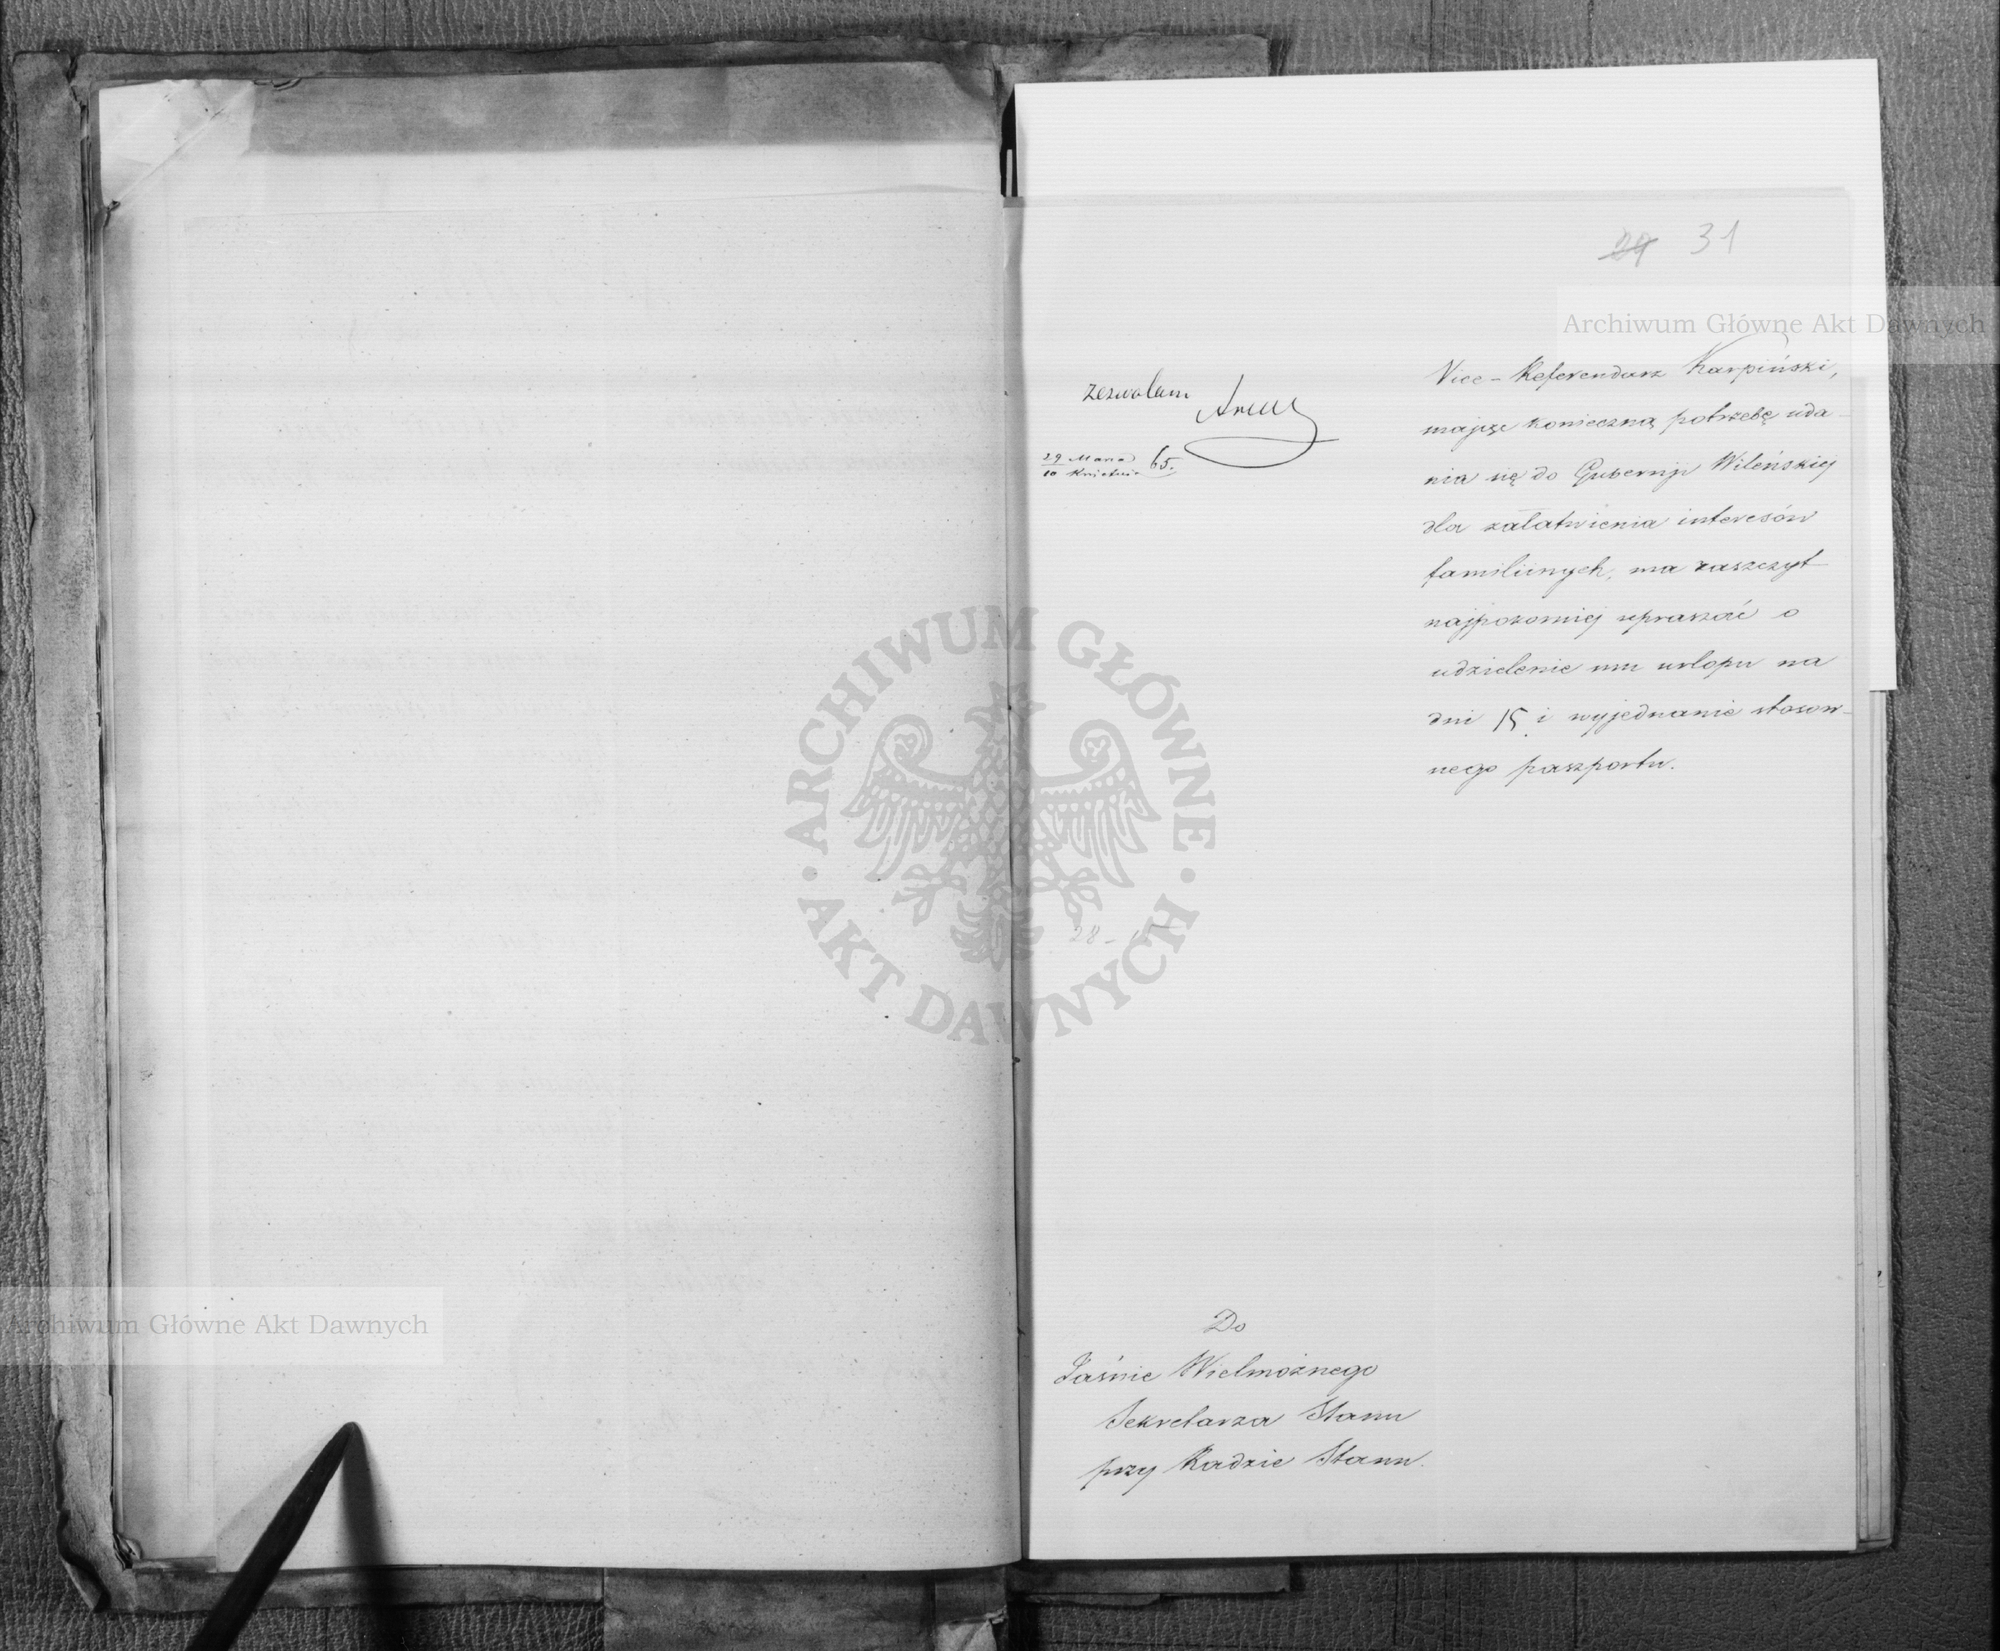 29 31
Archiwum Główne Akt Dawnych
Vice-Referendarz Karpiński,
mając konieczną potrzebę uda-
nia się do Gubernji Wileńskiej
dla załatwienia interesów
familiinych, ma zaszczyt
najpokorniej upraszać o
udzielenie mu urlopu na
dni 15 i wyjednanie stosow-
nego paszportu.
zezwalam
29 Marca
10 Kwietnia 65.
ARCHIWUM GŁÓWNE
AKT DAWNYCH
28-
Do
Jaśnie Wielmożnego
Sekretarza Stanu
przy Radzie Stanu.
Archiwum Główne Akt Dawnych